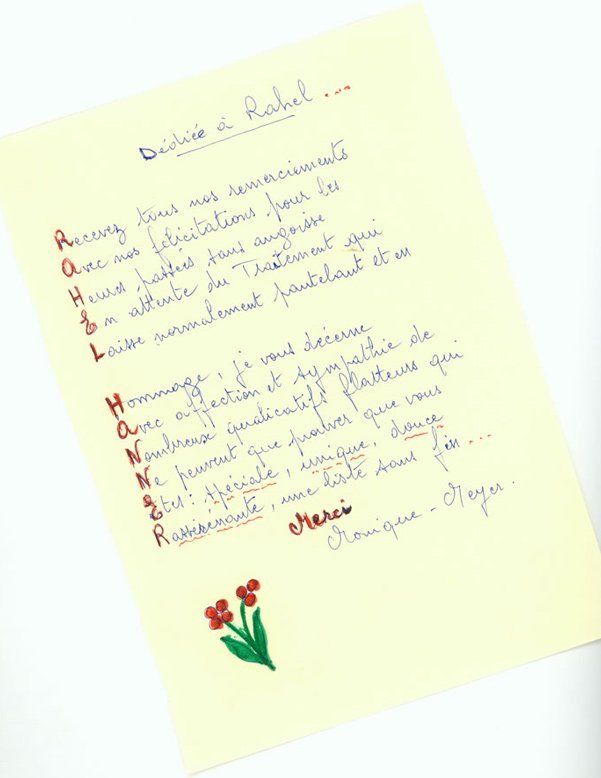 Dédiée à Rahel ...
Recevez tous nos remerciements
Avec nos félicitations pour les
Heures passées sans angoisse
En attente du Traitement qui
Laisse normalement pantelant et en
Hommage, je vous décerne
Avec affection et sympathie de
Nombreux qualicatifs flatteurs qui
Ne peuvent que prouver que vous
Etes : spéciale, unique, douce
Rassérénante, une liste sans fin ...
Merci
Monique - Meyer.